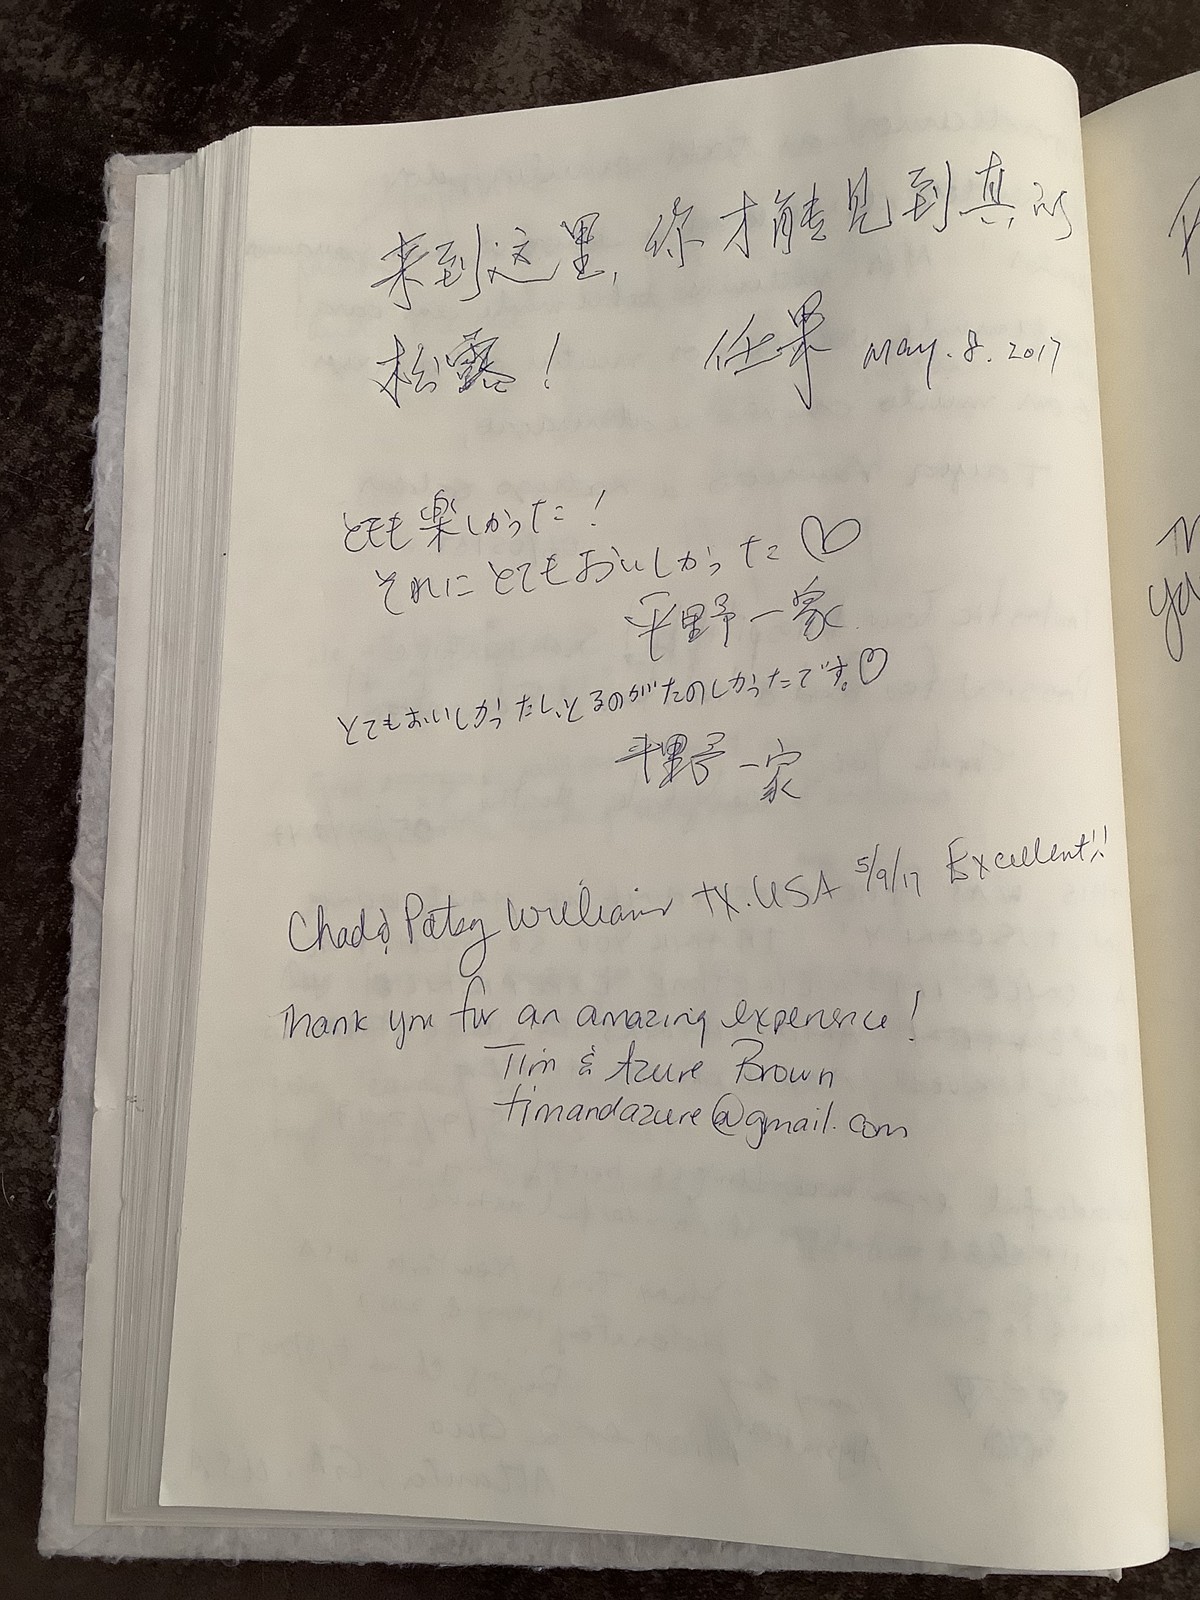 来到这里,你才能见到真的
松露! 任果 May. 8. 2017
とても楽しかった!
それにとてもおいしかった♡
平野一家
とてもおいしかったし、とるのがたのしかったです。♡
平野一家
Chad & Patsy Williams TX. USA 5/9/17 Excellent!!
Thank you for an amazing experience!
Tim & Azure Brown
timandazure@gmail.com